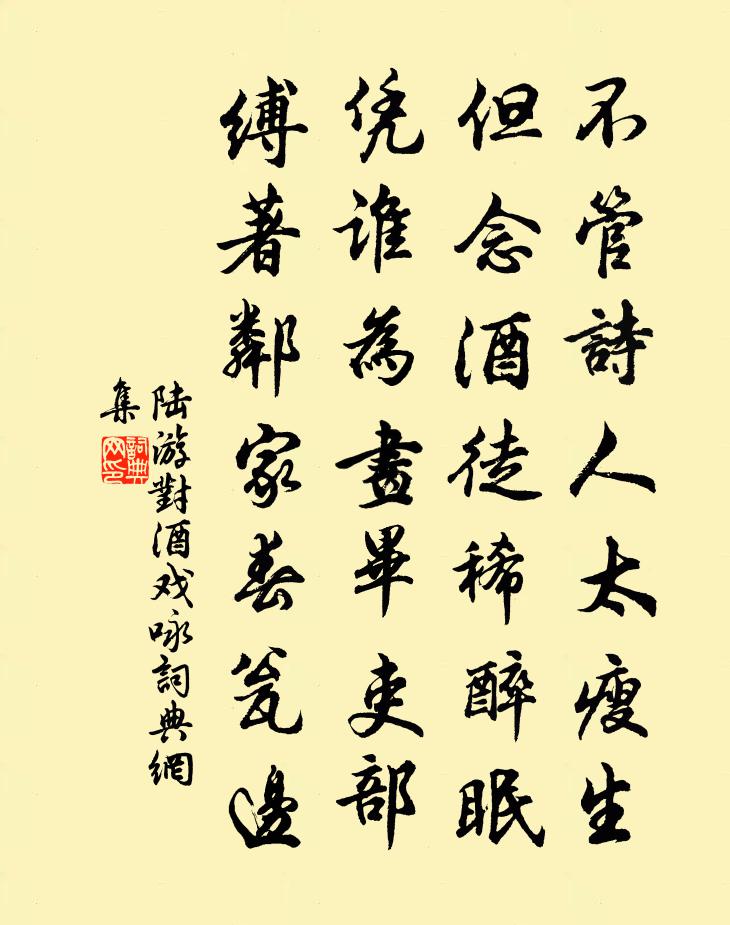 不管詩人太瘦生
但念酒徒稀醉眠
凭谁為畫畢吏部
縛著鄰家春瓮邊
陆游對酒戏咏詞典網
集
詞典
网印